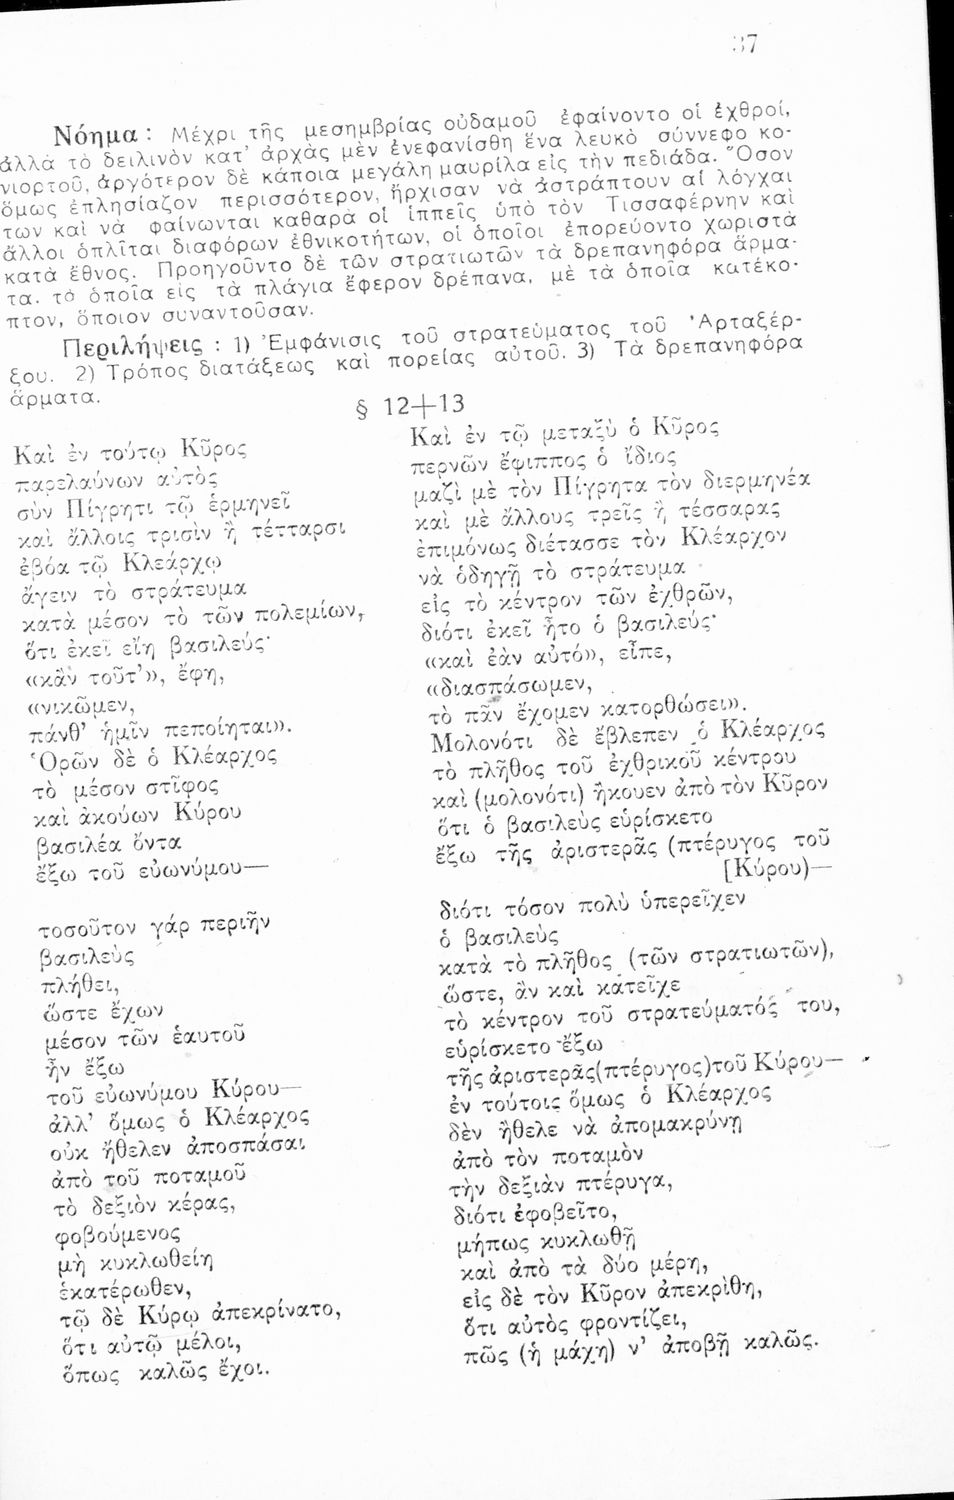 37
Νόημα : Μέχρι τῆς μεσημβρίας οὐδαμοῦ ἐφαίνοντο οἱ ἐχθροί,
ἀλλὰ τὸ δειλινὸν κατ' ἀρχὰς μὲν ἐνεφανίσθη ἕνα λευκὸ σύννεφο κο-
νιορτοῦ, ἀργότερον δὲ κάποια μεγάλη μαυρίλα εἰς τὴν πεδιάδα. Ὅσον
ὅμως ἐπλησίαζον περισσότερον, ἤρχισαν νὰ ἀστράπτουν αἱ λόγχαι
των καὶ νὰ φαίνωνται καθαρὰ οἱ ἱππεῖς ὑπὸ τὸν Τισσαφέρνην καὶ
ἄλλοι ὁπλῖται διαφόρων ἐθνικοτήτων, οἱ ὁποῖοι ἐπορεύοντο χωριστὰ
κατὰ ἔθνος. Προηγοῦντο δὲ τῶν στρατιωτῶν τὰ δρεπανηφόρα ἅρμα-
τα. τὸ ὁποῖα εἰς τὰ πλάγια ἔφερον δρέπανα, μὲ τὰ ὁποῖα κατέκο-
πτον, ὅποιον συναντοῦσαν.
Περιλήψεις : 1) Ἐμφάνισις τοῦ στρατεύματος τοῦ Ἀρταξέρ-
ξου. 2) Τρόπος διατάξεως καὶ πορείας αὐτοῦ. 3) Τὰ δρεπανηφόρα
ἅρματα.
§ 12+13
Καὶ ἐν τούτῳ Κῦρος
παρελαύνων αὐτὸς
σὺν Πίγρητι τῷ ἑρμηνεῖ
καὶ ἄλλοις τρισὶν ἢ τέτταρσι
ἐβόα τῷ Κλεάρχῳ
ἄγειν τὸ στράτευμα
κατὰ μέσον τὸ τῶν πολεμίων,
ὅτι ἐκεῖ εἴη βασιλεύς·
«κἂν τοῦτ'», ἔφη,
«νικῶμεν,
πάνθ' ἡμῖν πεποίηται».
Ὁρῶν δὲ ὁ Κλέαρχος
τὸ μέσον στῖφος
καὶ ἀκούων Κύρου
βασιλέα ὄντα
ἔξω τοῦ εὐωνύμου—
τοσοῦτον γάρ περιῆν
βασιλεὺς
πλήθει,
ὥστε ἔχων
μέσον τῶν ἑαυτοῦ
ἦν ἔξω
τοῦ εὐωνύμου Κύρου—
ἀλλ' ὅμως ὁ Κλέαρχος
οὐκ ἤθελεν ἀποσπάσαι
ἀπὸ τοῦ ποταμοῦ
τὸ δεξιὸν κέρας,
φοβούμενος
μὴ κυκλωθείη
ἑκατέρωθεν,
τῷ δὲ Κύρῳ ἀπεκρίνατο,
ὅτι αὐτῷ μέλοι,
ὅπως καλῶς ἔχοι.
Καὶ ἐν τῷ μεταξὺ ὁ Κῦρος
περνῶν ἔφιππος ὁ ἴδιος
μαζὶ μὲ τὸν Πίγρητα τὸν διερμηνέα
καὶ μὲ ἄλλους τρεῖς ἢ τέσσαρας
ἐπιμόνως διέτασσε τὸν Κλέαρχον
νὰ ὁδηγῇ τὸ στράτευμα
εἰς τὸ κέντρον τῶν ἐχθρῶν,
διότι ἐκεῖ ἦτο ὁ βασιλεύς·
«καὶ ἐὰν αὐτό», εἶπε,
«διασπάσωμεν,
τὸ πᾶν ἔχομεν κατορθώσει».
Μολονότι δὲ ἔβλεπεν ὁ Κλέαρχος
τὸ πλῆθος τοῦ ἐχθρικοῦ κέντρου
καὶ (μολονότι) ἤκουεν ἀπὸ τὸν Κῦρον
ὅτι ὁ βασιλεὺς εὑρίσκετο
ἔξω τῆς ἀριστερᾶς (πτέρυγος τοῦ
[Κύρου)—
διότι τόσον πολὺ ὑπερεῖχεν
ὁ βασιλεὺς
κατὰ τὸ πλῆθος (τῶν στρατιωτῶν),
ὥστε, ἂν καὶ κατεῖχε
τὸ κέντρον τοῦ στρατεύματός του,
εὑρίσκετο ἔξω
τῆς ἀριστερᾶς(πτέρυγος)τοῦ Κύρου—
ἐν τούτοις ὅμως ὁ Κλέαρχος
δὲν ἤθελε νὰ ἀπομακρύνῃ
ἀπὸ τὸν ποταμὸν
τὴν δεξιὰν πτέρυγα,
διότι ἐφοβεῖτο,
μήπως κυκλωθῇ
καὶ ἀπὸ τὰ δύο μέρη,
εἰς δὲ τὸν Κῦρον ἀπεκρίθη,
ὅτι αὐτὸς φροντίζει,
πῶς (ἡ μάχη) ν' ἀποβῇ καλῶς.